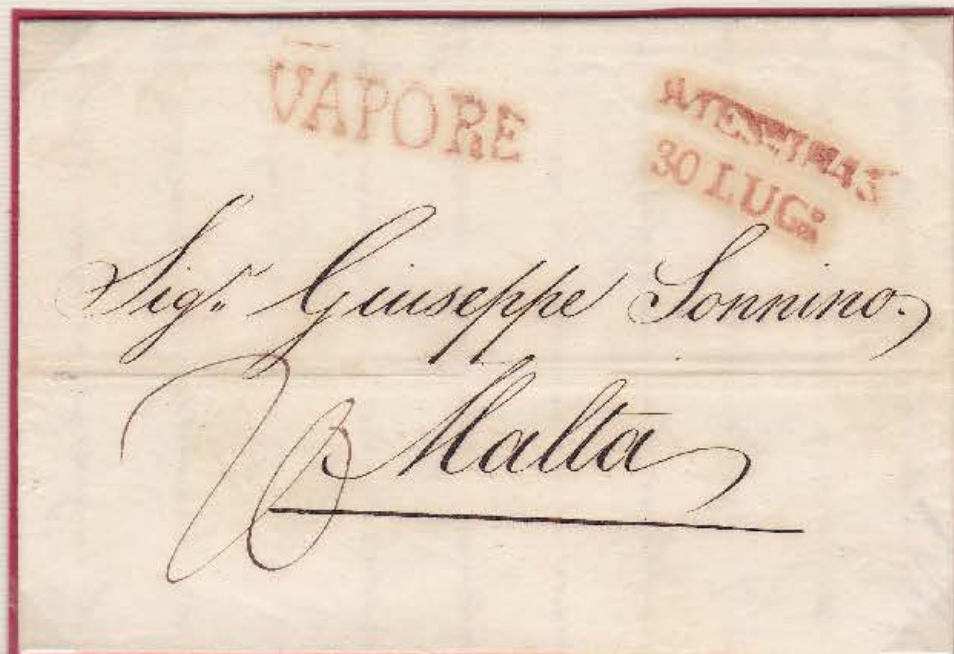 VAPORE
30 LUG:
Sigr. Giuseppe Sonnino.
Malta